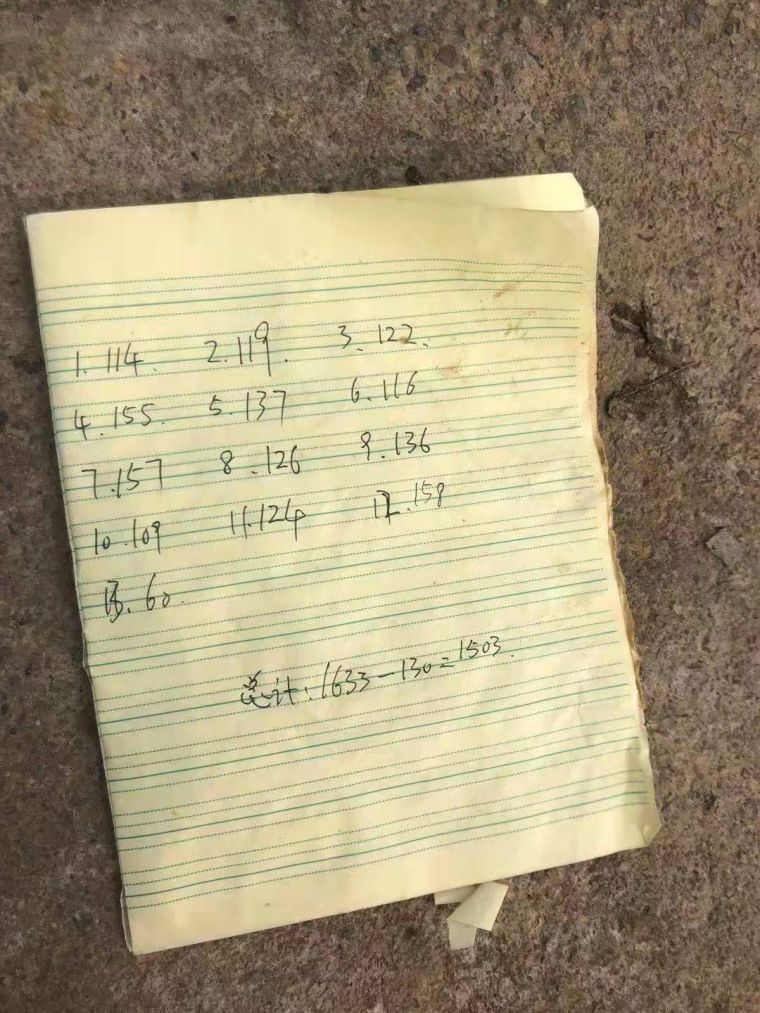 1.114. 2.119. 3.122.
4.155. 5.137 6.116
7.157 8.126 9.136
10.109 11.124 12.158
13.60.
总计:1633-130=1503.